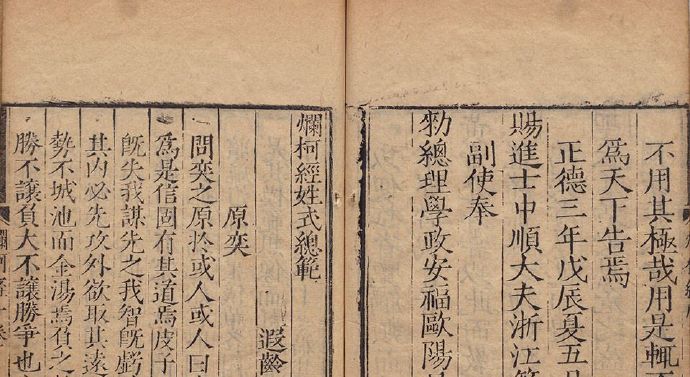 不用其極哉用是輒不
爲天下告焉
正德三年戊辰夏五月
賜進士中順大夫浙江等
副使奉
勑總理學政安福歐陽
爛柯經姓式總範
遐齡
原奕
問奕之原扵或人或人曰
爲是信固有其道焉皮子
旣失我謀先之我智旣虧
其內必先攻外欲取其遠
勢不城池而金湯焉負之
勝不讓負大不讓勝爭也